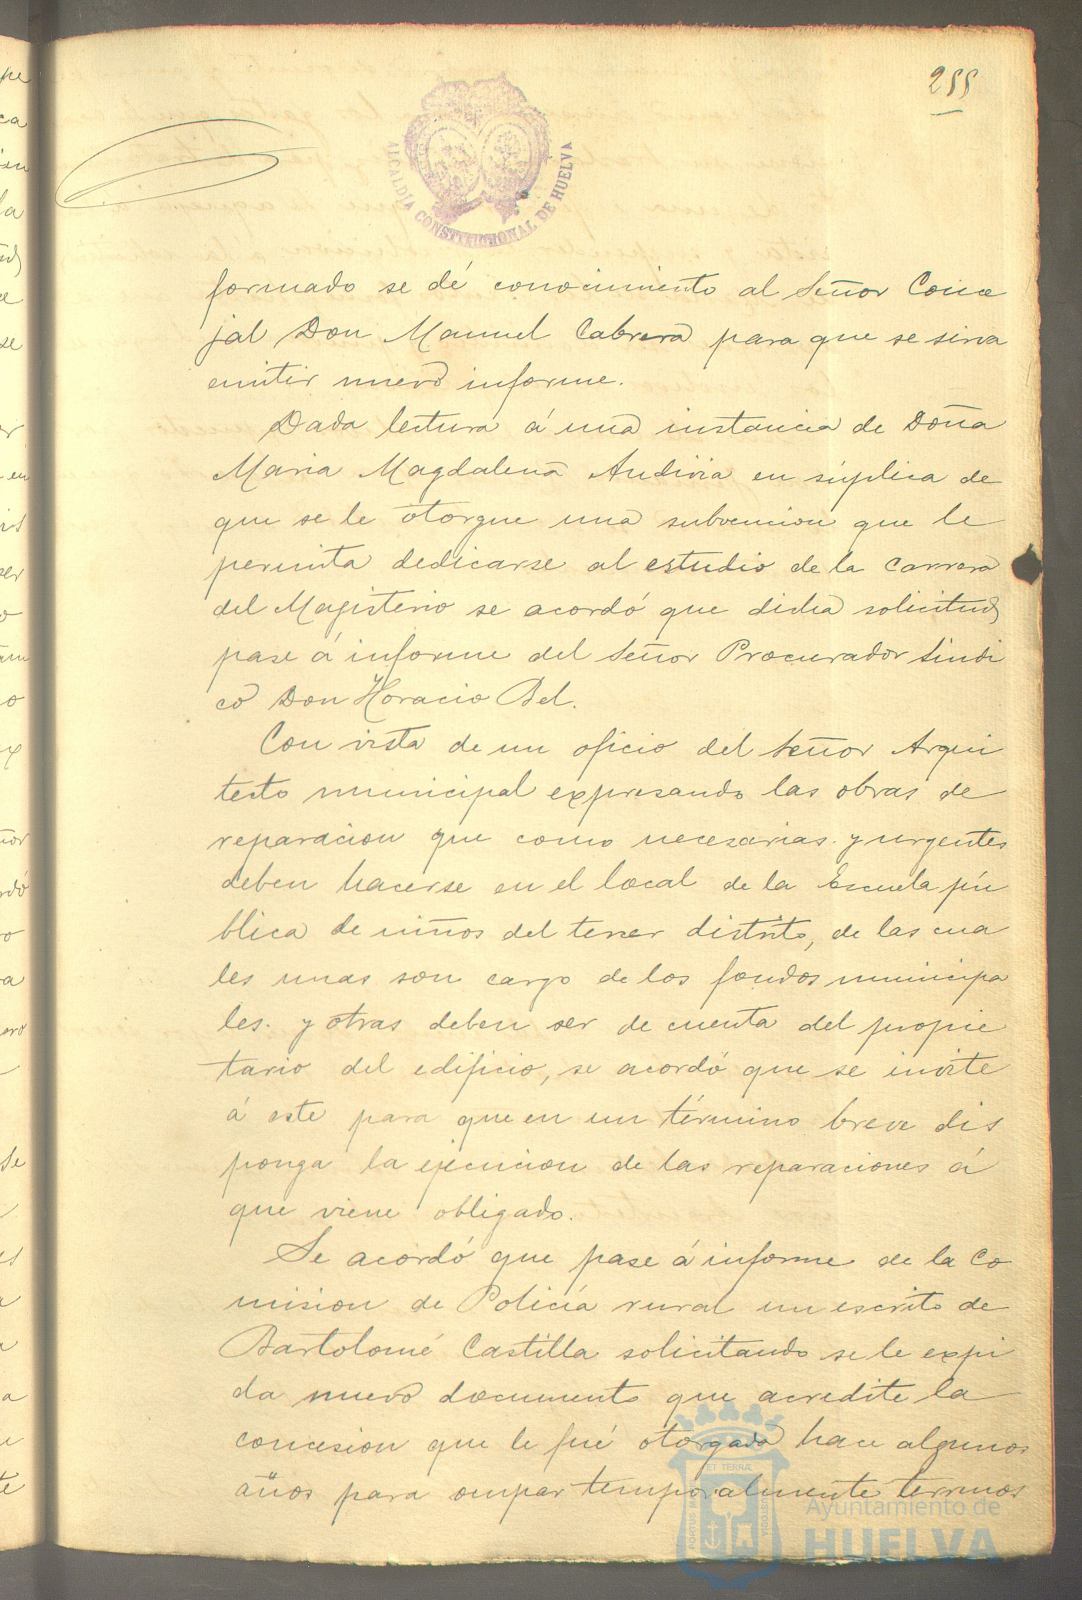 255
ALCALDÍA CONSTITUCIONAL DE HUELVA
formado se dé conocimiento al Señor Conce
jal Don Manuel Cabrera para que se sirva
emitir nuevo informe.
Dada lectura á una instancia de Doña
Maria Magdalena Andivia en súplica de
que se le otorgue una subvencion que le
permita dedicarse al estudio de la Carrera
del Magisterio se acordó que dicha solicitud
pase á informe del Señor Procurador Sindi
co Don Horacio Bel.
Con vista de un oficio del Señor Arqui
tecto municipal expresando las obras de
reparacion que como necesarias y urgentes
deben hacerse en el local de la Escuela pú
blica de niños del tercer distrito, de las cua
les unas son cargo de los fondos municipa
les y otras deben ser de cuenta del propie
tario del edificio, se acordó que se invite
á este para que en un término breve dis
ponga la ejecucion de las reparaciones á
que viene obligado.
Se acordó que pase á informe de la Co
mision de Policía rural un escrito de
Bartolomé Castilla solicitando se le expi
da nuevo documento que acredite la
concesion que le fué otorgada hace algunos
años para ocupar temporalmente terrenos
Ayuntamiento de
HUELVA